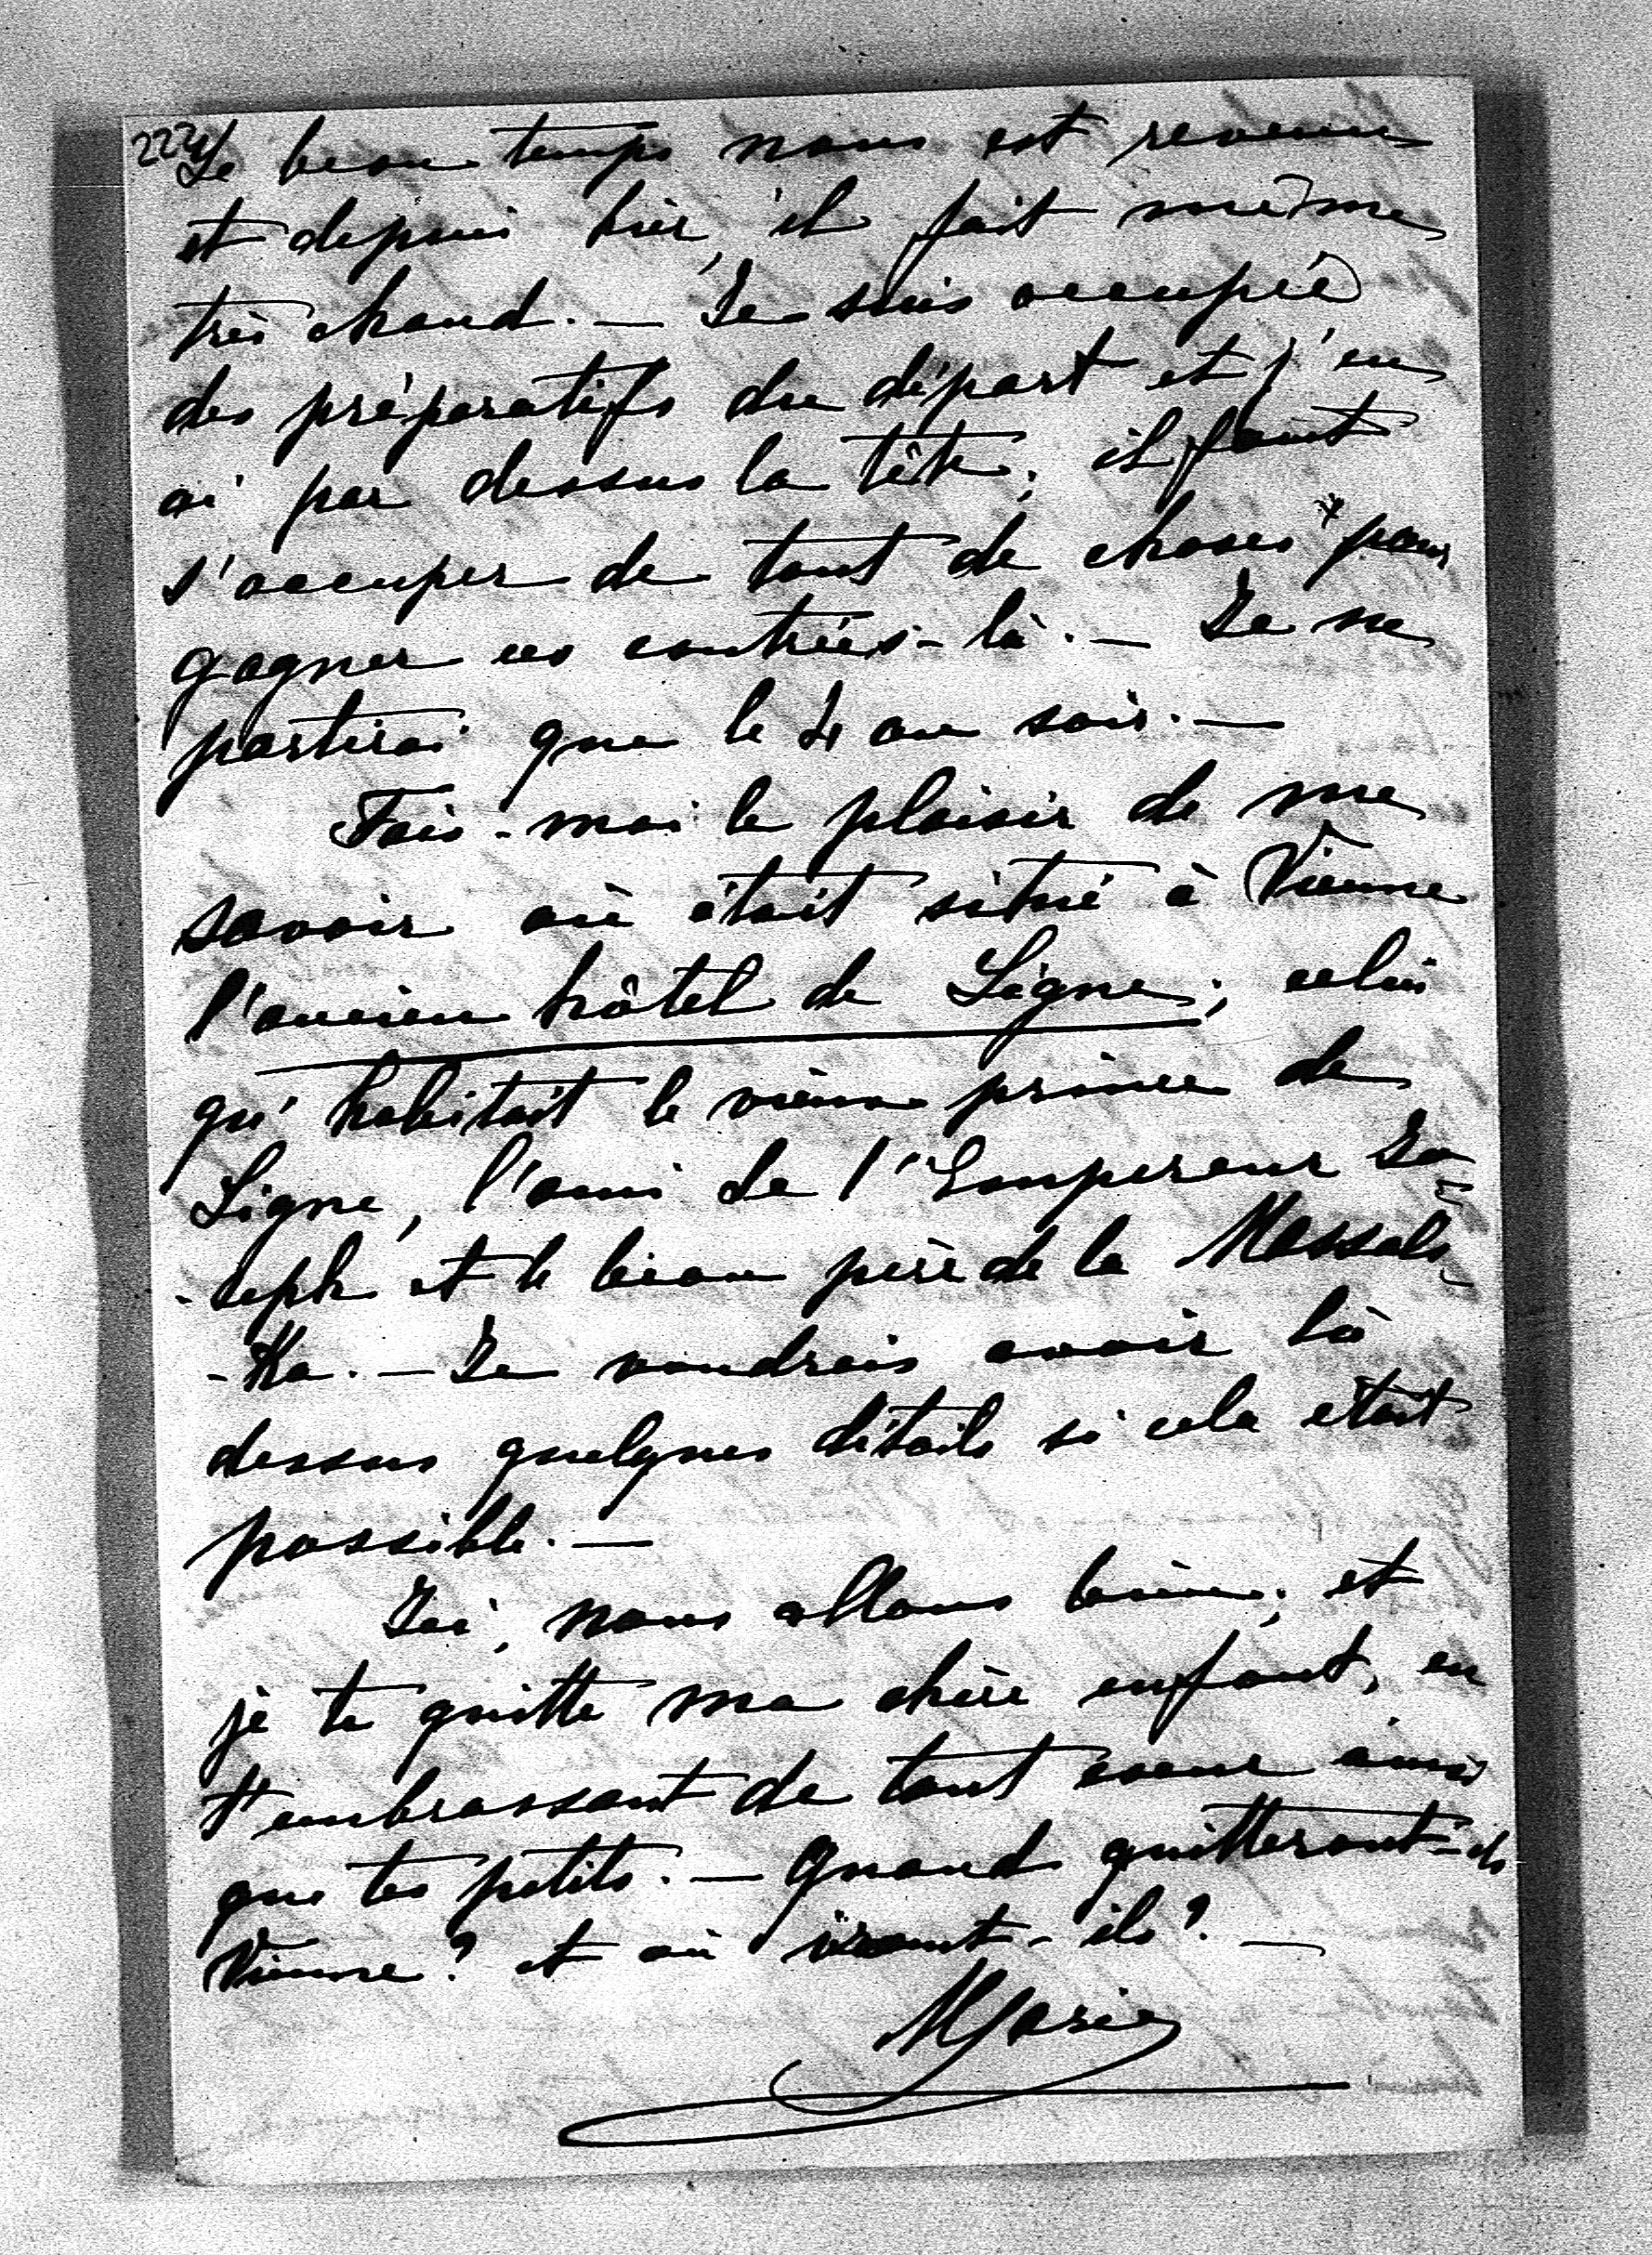 222
Le beau temps nous est revenu
et depuis hier, il fait même
très chaud. — Je suis occupée
des préparatifs du départ et j'en
ai par dessus la tête; il faut
s'occuper de tout de choses pour
gagner ces contrées-là. — Je ne
partirai que le 4 au soir. —
Fais-moi le plaisir de me
savoir où était situé à Vienne
l'ancien hôtel de Ligne; celui
qu'habitait le vieux prince de
Ligne, l'ami de l'Empereur Jo-
-seph et le beau père de la Massals-
-Ka. — Je voudrais avoir là
dessus quelques détails si cela était
possible. —
Ici, nous allons bien; et
je te quitte ma chère enfant, en
t'embrassant de tout coeur ainsi
que tes petits. — Quand quitteront-ils
Vienne? et où iront-ils? —
Marie